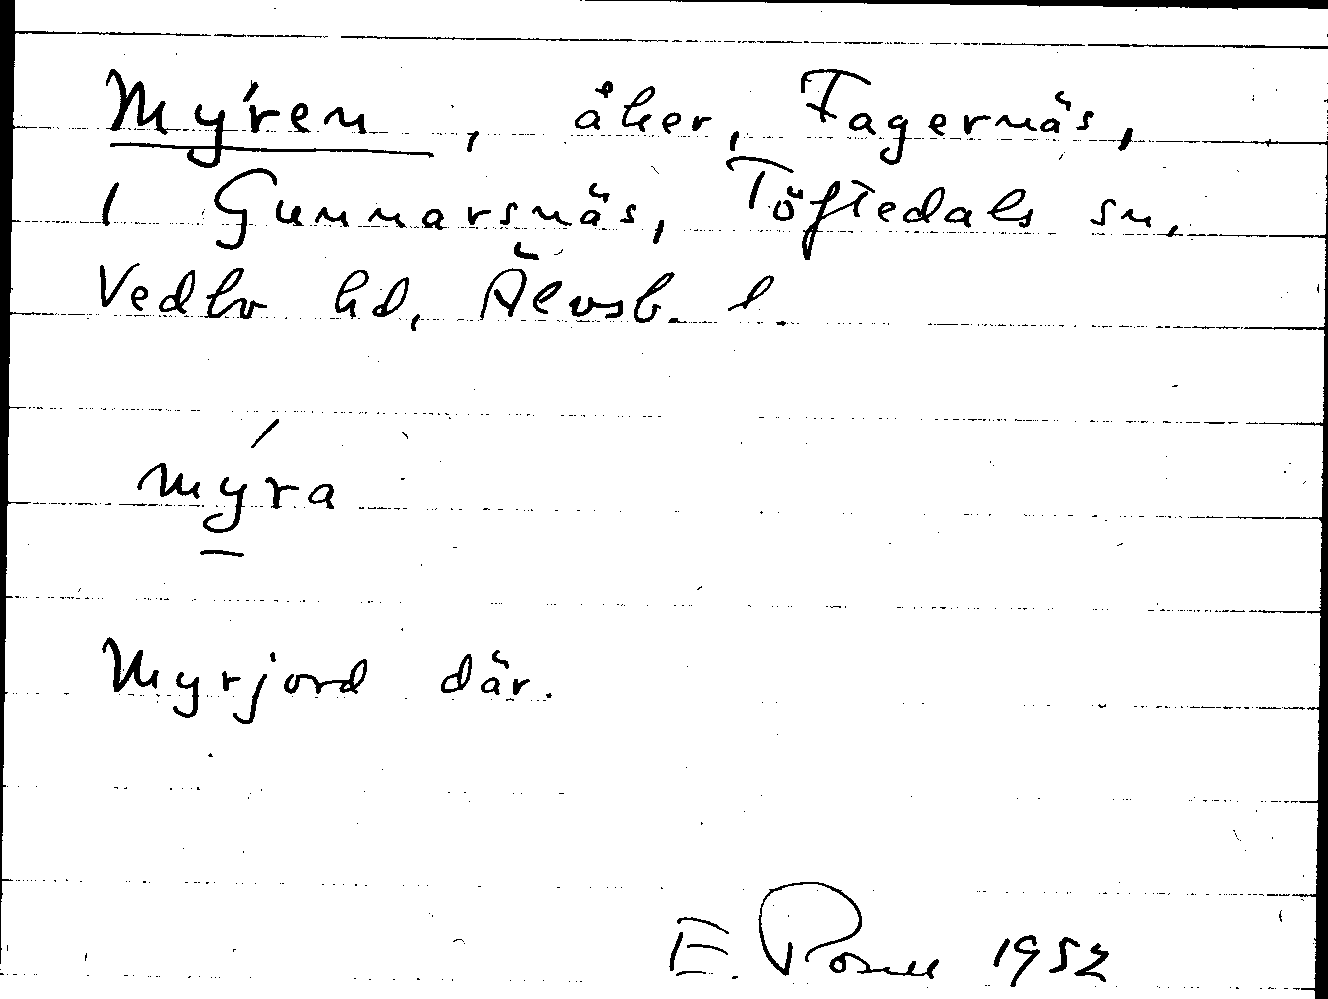 Mýren, åker, Fagernäs,
1 Gunnarsnäs, Töftedals sn,
Vedbo hd, Älvsb. l.
mýra
Myrjord där.
E. Rosell 1952